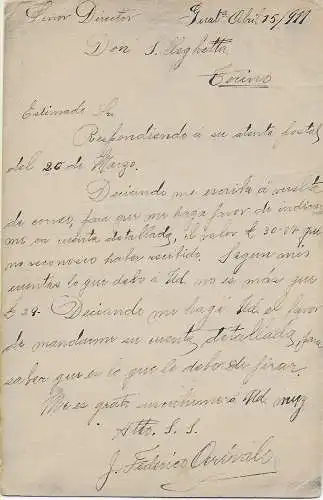 Senor Director Abril 15/911
Don S.
Torino
Estimado Sr
Respondiendo a su atenta postal
del 26 de Marzo.
Deseando me escriba á vuelta
de correo, para que me haga favor de indicar
me su cuenta detallada, el valor £ 30-07 que
no reconosco haber recibido. Segun mis
cuentas lo que debo á Ud. no es más que
£ 24- Deseando me hagá Ud. el favor
de mandarme su cuenta detallada, para
saber que es lo que le debo de firar.
Me es grato Ud. muy
Atto. S. S.
J. Federico